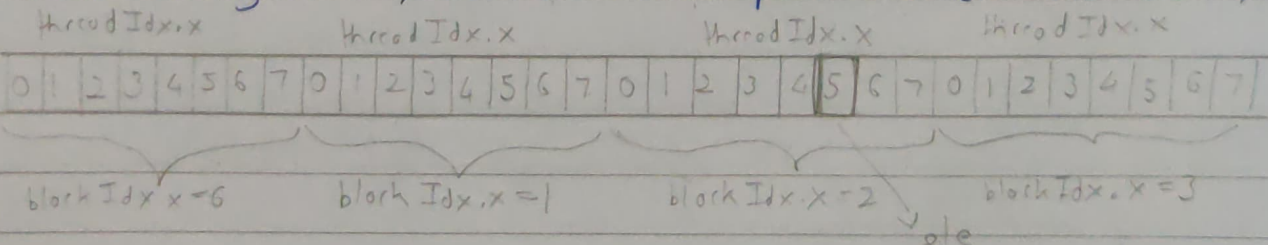 thread Idx.x thread Idx.x thread Idx.x thread Idx.x
0 1 2 3 4 5 6 7 0 1 2 3 4 5 6 7 0 1 2 3 4 5 6 7 0 1 2 3 4 5 6 7
block Idx x=6 block Idx.x=1 block Idx.x=2 block Idx.x=3